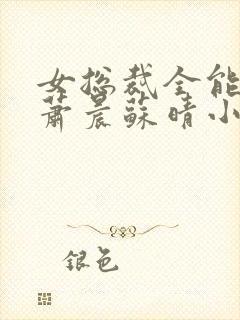 女总裁全能
萧晨苏晴小
银色